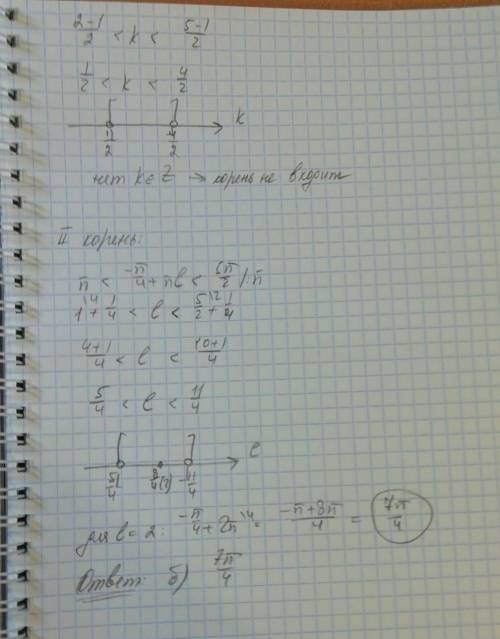 (2-1)/2 < k < (5-1)/2
1/2 < k < 4/2
k
1/2 4/2
нет k ∈ Z → корень не входит
II корень:
π < -π/4 + πl < 5π/2 /:π
1\4 + 1/4 < l < 5/2\2 + 1/4
(4+1)/4 < l < (10+1)/4
5/4 < l < 11/4
l
5/4 8/4(2) 11/4
для l = 2: -π/4 + 2π\4 = (-π+8π)/4 = 7π/4
Ответ: б) 7π/4